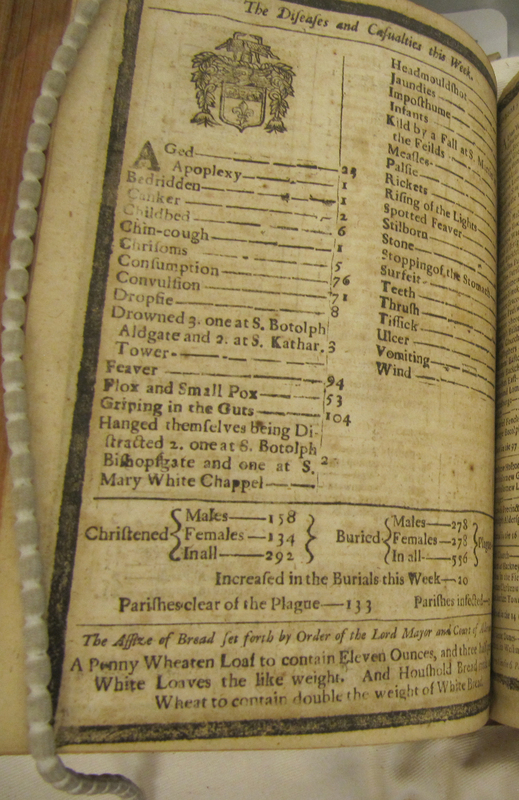 The Diſeaſes and Caſualties this Week.
AGed 25
Apoplexy 1
Bedridden 1
Canker 2
Childbed 6
Chin-cough 1
Chriſoms 5
Conſumption 76
Convulſion 71
Dropſie 8
Drowned 3. one at S. Botolph
Aldgate and 2. at S. Kathar. 3
Tower
Feaver 94
Flox and Small Pox 53
Griping in the Guts 104
Hanged themſelves being Di-
ſtracted 2. one at S. Botolph
Biſhopſgate and one at S. 2
Mary White Chappel
Headmouldſhot
Jaundies
Impoſthume
Infants
Kild by a Fall at S.
the Feilds
Meaſles
Palſie
Rickets
Riſing of the Lights
Spotted Feaver
Stilborn
Stone
Stopping of the Stomach
Surfeit
Teeth
Thruſh
Tiſſick
Ulcer
Vomiting
Wind
Chriſtened { Males—158 } Buried { Males—278
Females—134 Females—278
In all—292 In all—556
Increaſed in the Burials this Week—20
Pariſhes clear of the Plague—133 Pariſhes infected
The Aſſize of Bread ſet forth by Order of the Lord Mayor and Court of
A Penny Wheaten Loaf to contain Eleven Ounces, and three
White Loaves the like weight. And Houſhold Bread
Wheat to contain double the weight of White